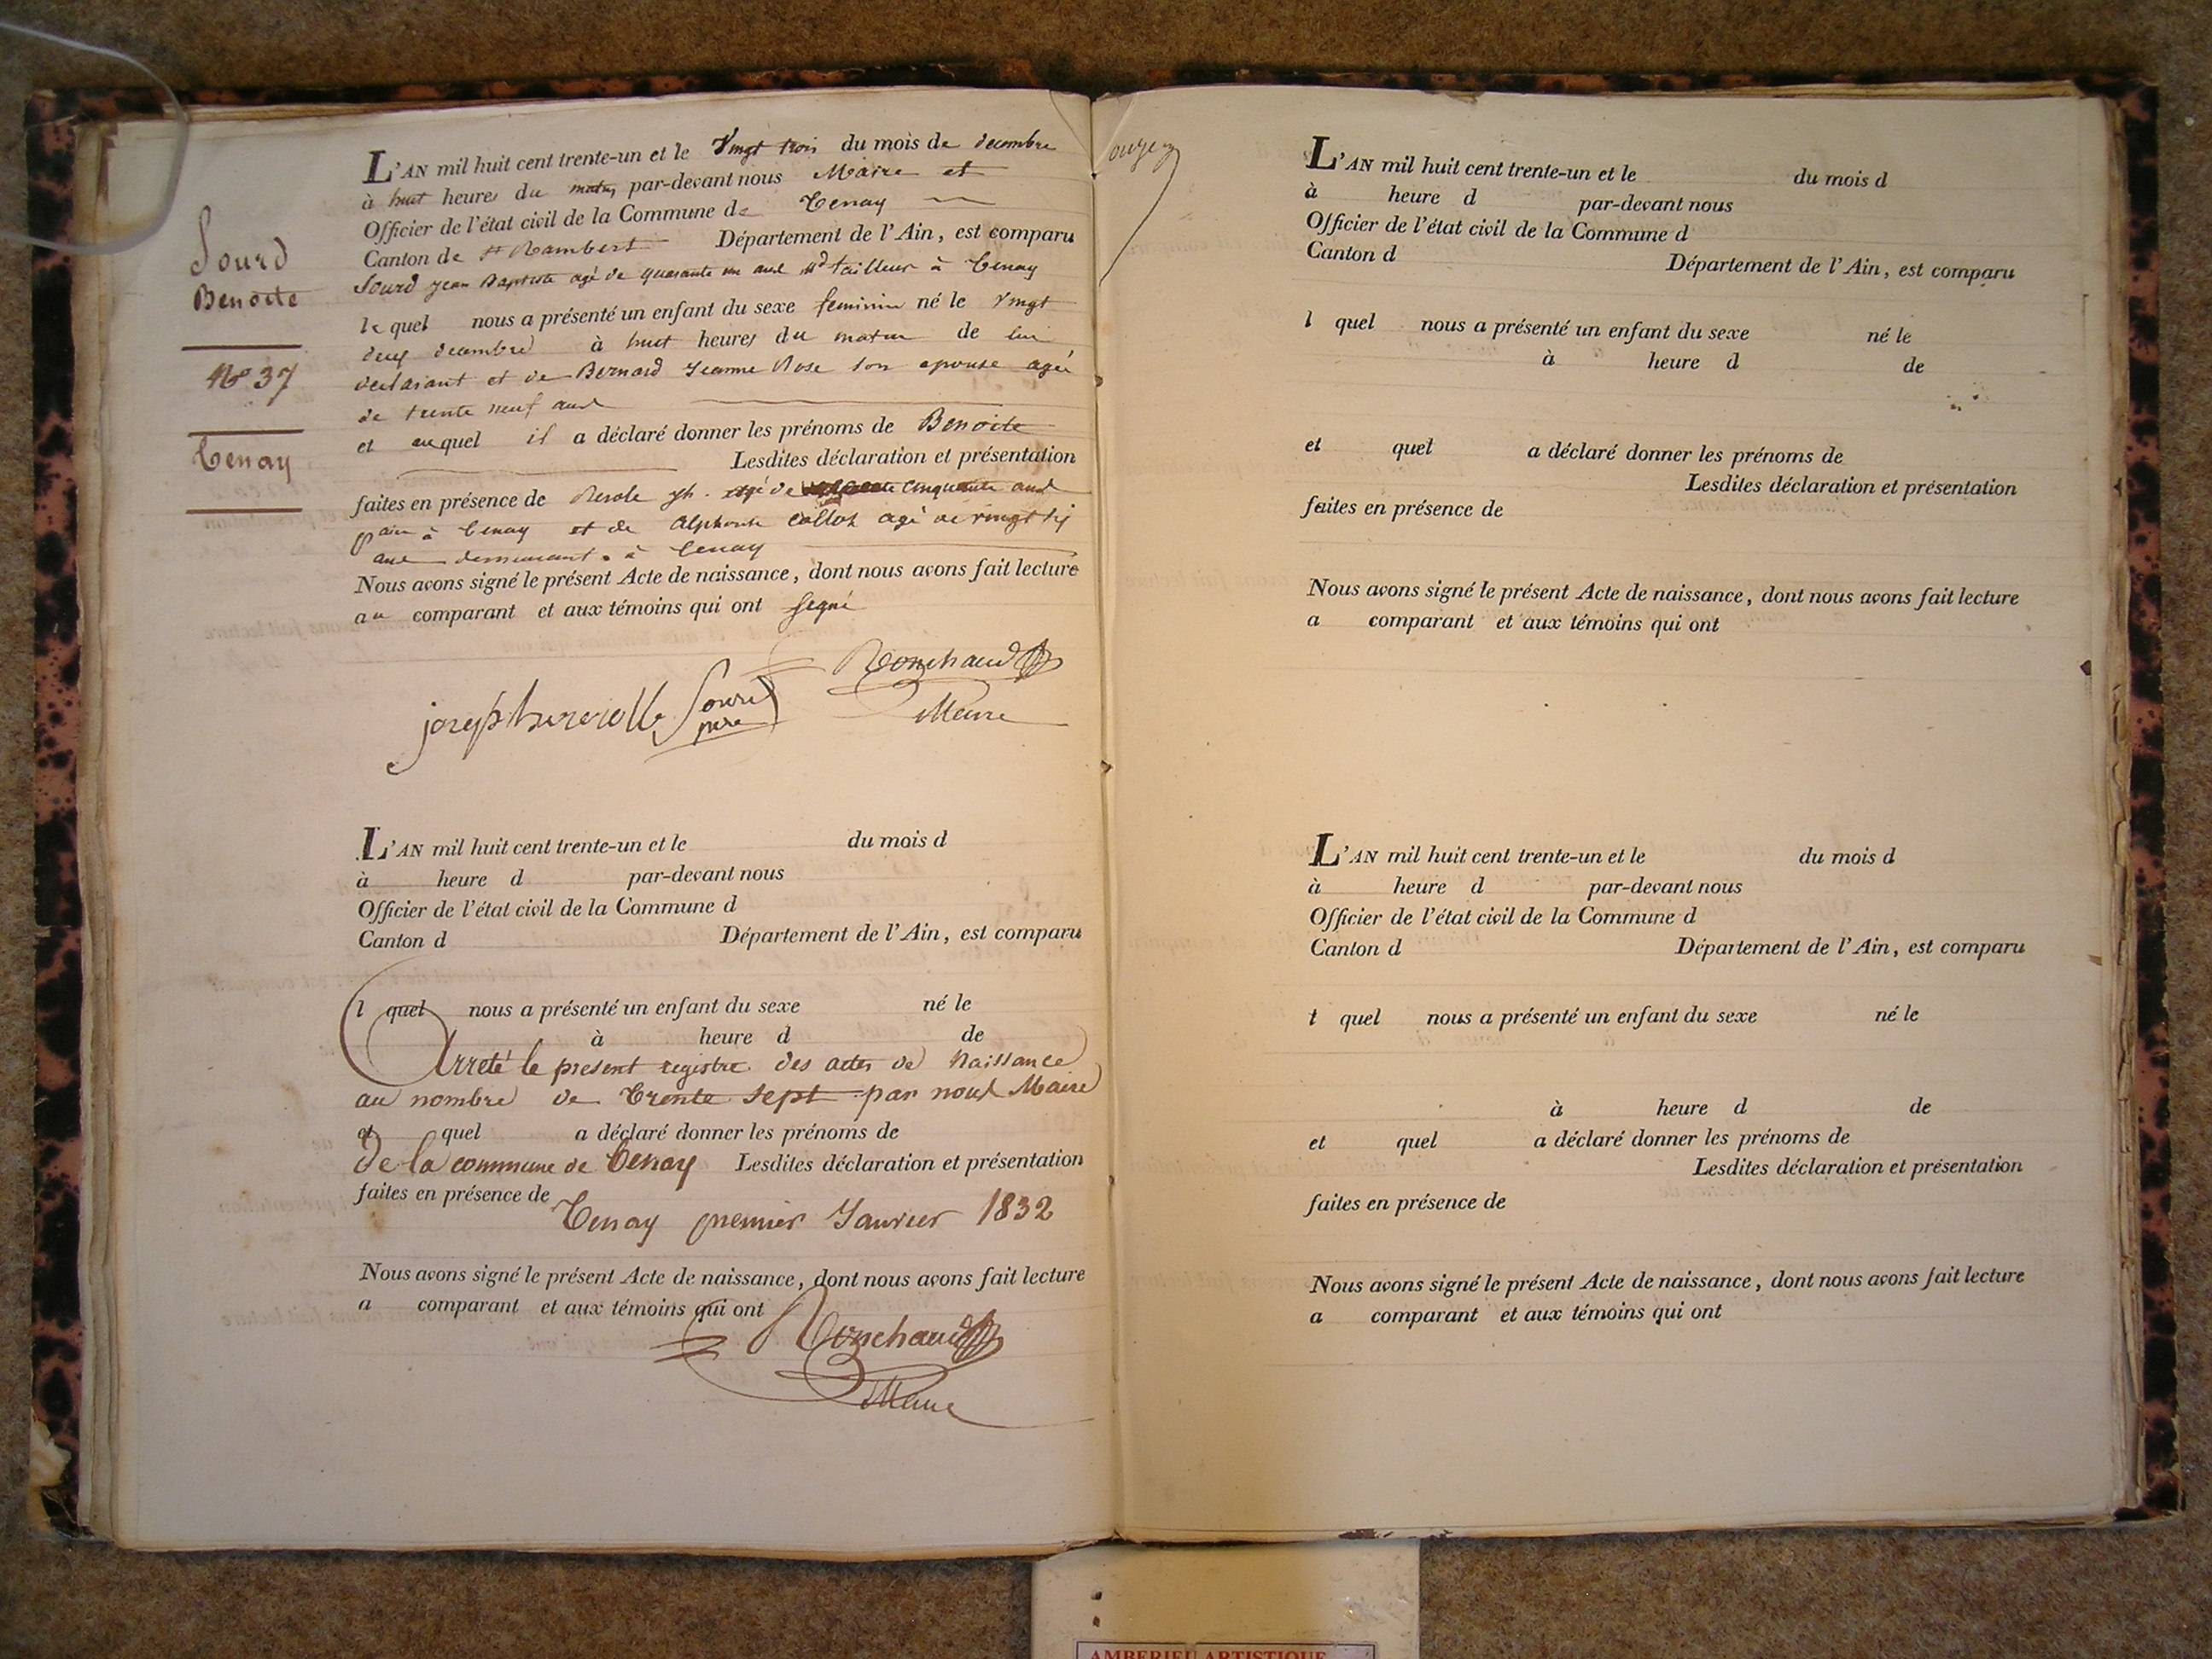 Sourd
Benoite
N° 37
Tenay
L'AN mil huit cent trente-un et le Vingt trois du mois de decembre
à huit heures du matin, par-devant nous Maire et
Officier de l'état civil de la Commune de Tenay
Canton de St Rambert Département de l'Ain, est comparu
Sourd jean Baptiste agé de quarante un ans Md tailleur à Tenay
lequel nous a présenté un enfant du sexe feminin né le Vingt
deux decembre à huit heures du matin de lui
declarant et de Bernard Jeanne Rose son epouse agée
de trente neuf ans
et auquel il a déclaré donner les prénoms de Benoite
Lesdites déclaration et présentation
faites en présence de jh. agé de cinquante ans
à Tenay et de alphonse agé de vingt six
ans demeurant à Tenay
Nous avons signé le présent Acte de naissance, dont nous avons fait lecture
au comparant et aux témoins qui ont signé
Sourd
pere
Ronchaud
Maire
L'AN mil huit cent trente-un et le du mois d
à heure d par-devant nous
Officier de l'état civil de la Commune d
Canton d Département de l'Ain, est comparu
l quel nous a présenté un enfant du sexe né le
à heure d de
Arreté le present registre des actes de Naissance
au nombre de Trente sept par nous Maire
et quel a déclaré donner les prénoms de
de la commune de Tenay Lesdites déclaration et présentation
faites en présence de
Tenay premier Janvier 1832
Nous avons signé le présent Acte de naissance, dont nous avons fait lecture
a comparant et aux témoins qui ont
Ronchaud
Maire
L'AN mil huit cent trente-un et le du mois d
à heure d par-devant nous
Officier de l'état civil de la Commune d
Canton d Département de l'Ain, est comparu
l quel nous a présenté un enfant du sexe né le
à heure d de
et quel a déclaré donner les prénoms de
Lesdites déclaration et présentation
faites en présence de
Nous avons signé le présent Acte de naissance, dont nous avons fait lecture
a comparant et aux témoins qui ont
L'AN mil huit cent trente-un et le du mois d
à heure d par-devant nous
Officier de l'état civil de la Commune d
Canton d Département de l'Ain, est comparu
l quel nous a présenté un enfant du sexe né le
à heure d de
et quel a déclaré donner les prénoms de
Lesdites déclaration et présentation
faites en présence de
Nous avons signé le présent Acte de naissance, dont nous avons fait lecture
a comparant et aux témoins qui ont
AMBERIEU ARTISTIQUE